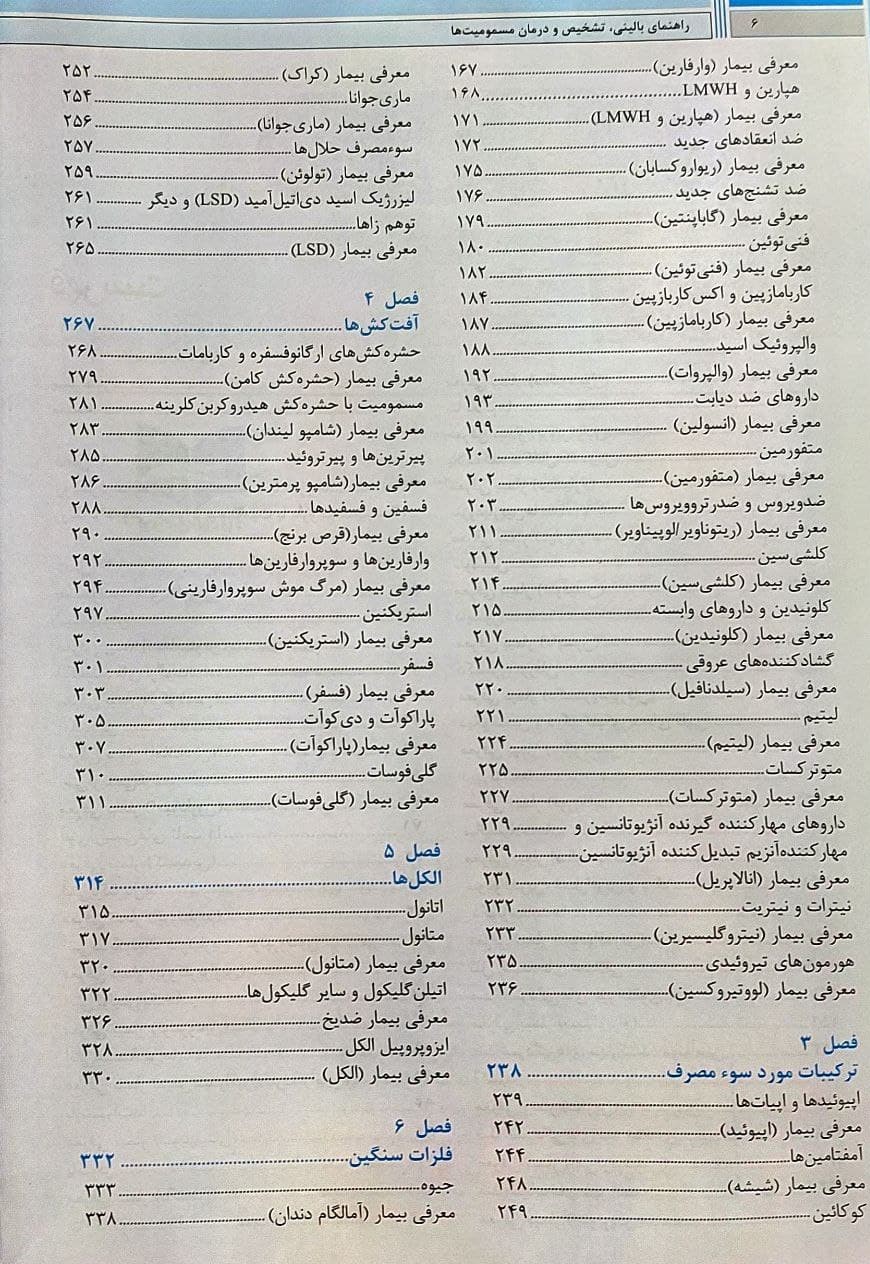 ۶
راهنمای بالینی، تشخیص و درمان مسمومیت‌ها
معرفی بیمار (وارفارین) ۱۶۷
هپارین و LMWH ۱۶۸
معرفی بیمار (هپارین و LMWH) ۱۷۱
ضد انعقادهای جدید ۱۷۲
معرفی بیمار (ریواروکسابان) ۱۷۵
ضد تشنج‌های جدید ۱۷۶
معرفی بیمار (گاباپنتین) ۱۷۹
فنی‌توئین ۱۸۰
معرفی بیمار (فنی‌توئین) ۱۸۲
کاربامازپین و اکس‌کاربازپین ۱۸۴
معرفی بیمار (کاربامازپین) ۱۸۷
والپروئیک اسید ۱۸۸
معرفی بیمار (والپروات) ۱۹۲
داروهای ضد دیابت ۱۹۳
معرفی بیمار (انسولین) ۱۹۹
متفورمین ۲۰۱
معرفی بیمار (متفورمین) ۲۰۲
ضدویروس و ضدرتروویروس‌ها ۲۰۳
معرفی بیمار (ریتوناویر/لوپیناویر) ۲۱۱
کلشی‌سین ۲۱۲
معرفی بیمار (کلشی‌سین) ۲۱۴
کلونیدین و داروهای وابسته ۲۱۵
معرفی بیمار (کلونیدین) ۲۱۷
گشادکننده‌های عروقی ۲۱۸
معرفی بیمار (سیلدنافیل) ۲۲۰
لیتیم ۲۲۱
معرفی بیمار (لیتیم) ۲۲۴
متوترکسات ۲۲۵
معرفی بیمار (متوترکسات) ۲۲۷
داروهای مهارکننده گیرنده آنژیوتانسین و ۲۲۹
مهارکننده‌آنزیم تبدیل‌کننده آنژیوتانسین ۲۲۹
معرفی بیمار (انالاپریل) ۲۳۱
نیترات و نیتریت ۲۳۲
معرفی بیمار (نیتروگلیسیرین) ۲۳۳
هورمون‌های تیروئیدی ۲۳۵
معرفی بیمار (لووتیروکسین) ۲۳۶
فصل ۳
ترکیبات مورد سوء مصرف ۲۳۸
اپیوئیدها و اپیات‌ها ۲۳۹
معرفی بیمار (اپیوئید) ۲۴۲
آمفتامین‌ها ۲۴۴
معرفی بیمار (شیشه) ۲۴۸
کوکائین ۲۴۹
معرفی بیمار (کراک) ۲۵۲
ماری‌جوانا ۲۵۴
معرفی بیمار (ماری‌جوانا) ۲۵۶
سوءمصرف حلال‌ها ۲۵۷
معرفی بیمار (تولوئن) ۲۵۹
لیزرژیک اسید دی‌اتیل‌آمید (LSD) و دیگر ۲۶۱
توهم زاها ۲۶۱
معرفی بیمار (LSD) ۲۶۵
فصل ۴
آفت‌کش‌ها ۲۶۷
حشره‌کش‌های ارگانوفسفره و کاربامات ۲۶۸
معرفی بیمار (حشره‌کش کامن) ۲۷۹
مسمومیت با حشره‌کش هیدروکربن‌کلرینه ۲۸۱
معرفی بیمار (شامپو لیندان) ۲۸۳
پیرترین‌ها و پیرتروئید ۲۸۵
معرفی بیمار(شامپو پرمترین) ۲۸۶
فسفین و فسفیدها ۲۸۸
معرفی بیمار(قرص برنج) ۲۹۰
وارفارین‌ها و سوپروارفارین‌ها ۲۹۲
معرفی بیمار (مرگ موش سوپروارفارینی) ۲۹۴
استریکنین ۲۹۷
معرفی بیمار (استریکنین) ۳۰۰
فسفر ۳۰۱
معرفی بیمار (فسفر) ۳۰۳
پاراکوآت و دی‌کوآت ۳۰۵
معرفی بیمار(پاراکوآت) ۳۰۷
گلی‌فوسات ۳۱۰
معرفی بیمار (گلی‌فوسات) ۳۱۱
فصل ۵
الکل‌ها ۳۱۴
اتانول ۳۱۵
متانول ۳۱۷
معرفی بیمار (متانول) ۳۲۰
اتیلن‌گلیکول و سایر گلیکول‌ها ۳۲۲
معرفی بیمار ضدیخ ۳۲۶
ایزوپروپیل الکل ۳۲۸
معرفی بیمار (الکل) ۳۳۰
فصل ۶
فلزات سنگین ۳۳۲
جیوه ۳۳۳
معرفی بیمار (آمالگام دندان) ۳۳۸